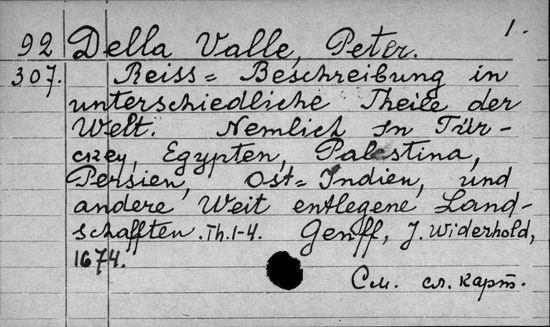 1.
92 Della Valle, Peter.
307. Reiss= Beschreibung in
unterschiedliche Theile der
Welt. Nemlich In Tür-
ckey, Egypten, Palestina,
Persien, Ost=Indien, und
andere Weit entlegene Land-
schafften. Th.1-4. Genff, J. Widerhold,
1674.
См. сл. карт.